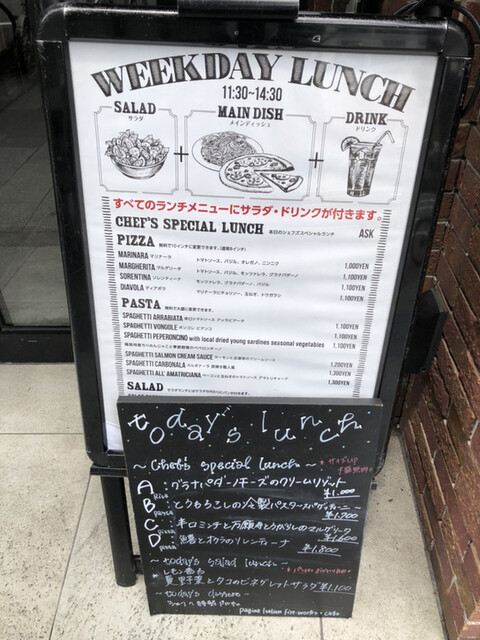 WEEKDAY LUNCH
11:30~14:30
SALAD
サラダ
+
MAIN DISH
メインディッシュ
+
DRINK
ドリンク
すべてのランチメニューにサラダ・ドリンクが付きます。
CHEF'S SPECIAL LUNCH 本日のシェフズスペシャルランチ ASK
PIZZA
MARINARA マリナーラ トマトソース、バジル、オレガノ、ニンニク 1,000YEN
MARGHERITA マルゲリータ トマトソース、バジル、モッツァレラ、グラナパダーノ 1,100YEN
SORENTINA ソレンティーナ モッツァレラ、グラナパダーノ、バジル 1,100YEN
DIAVOLA ディアボラ 1,100YEN
PASTA
SPAGHETTI ARRABIATA 辛口トマトソース アラビアータ
SPAGHETTI VONGOLE ボンゴレ ビアンコ 1,100YEN
SPAGHETTI PEPERONCINO with local dried young sardines seasonal vegetables 1,100YEN
1,100YEN
SPAGHETTI SALMON CREAM SAUCE サーモンとほうれん草のクリームソース
SPAGHETTI CARBONALA カルボナーラ 1,200YEN
SPAGHETTI ALL' AMATRICIANA ベーコンと玉ねぎのトマトソース アマトリチャーナ 1,300YEN
1,300YEN
SALAD
today's lunch
~ chef's special lunch ~
A: グラナパダーノチーズのクリームリゾット
Rice ¥1,000
B: とうもろこしの冷製パスタ
pasta
C: 辛口ミンチと万願寺とうがらしのマルゲリータ
pizza ¥1,600
D: とオクラのソレンティーナ
pizza ¥1,800
~ today's salad lunch ~
夏野菜とタコのビネグレットサラダ ¥1,100